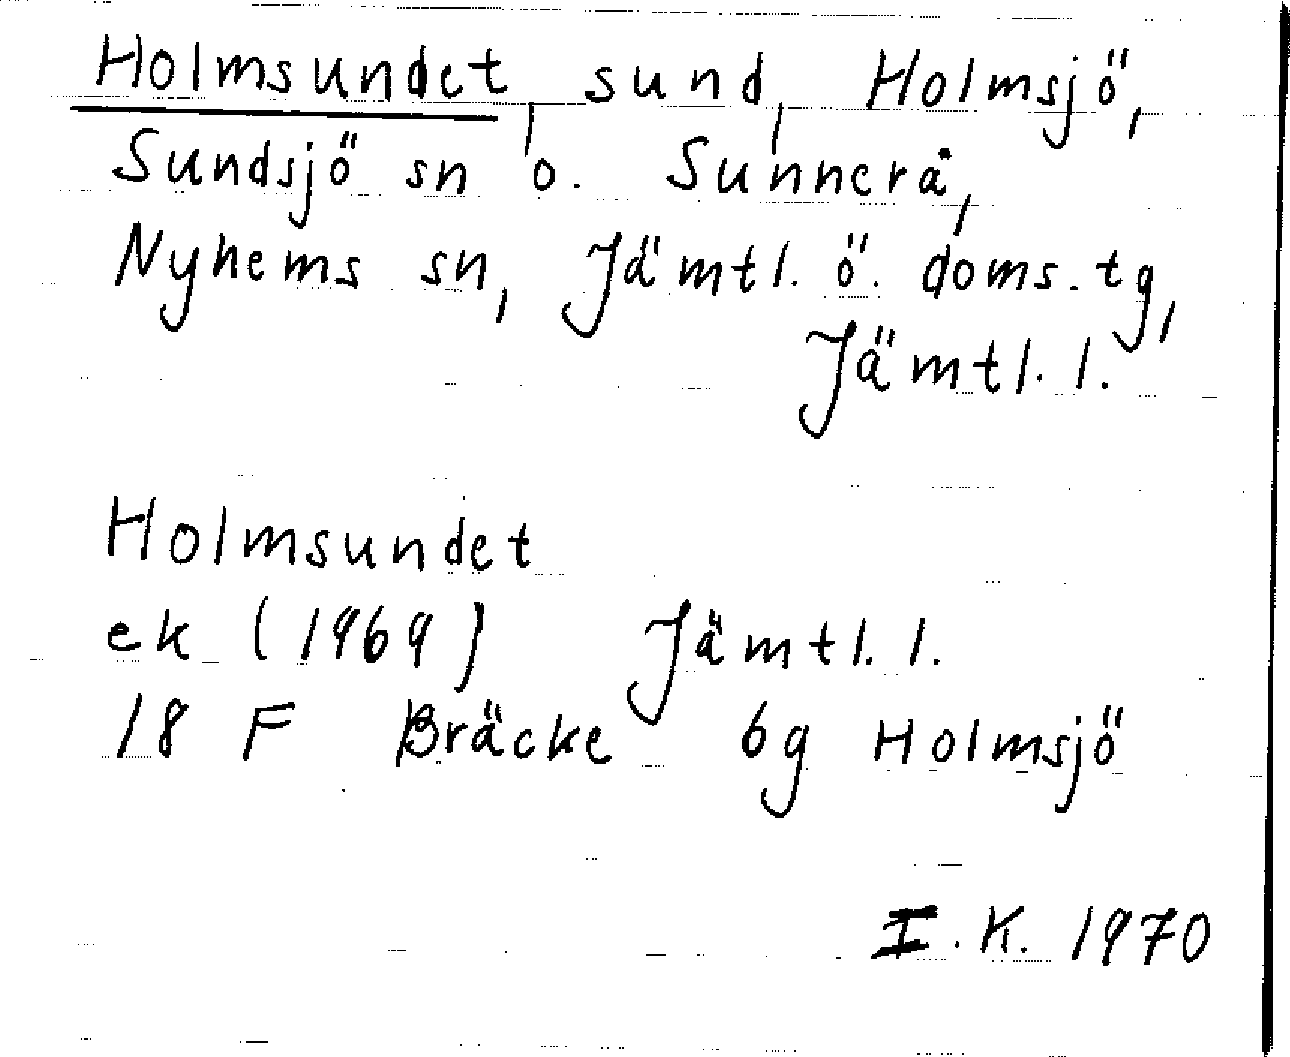 Holmsundet, sund, Holmsjö,
Sundsjö sn o. Sunnerå,
Nyhems sn, Jämtl. ö. doms.tg,
Jämtl. l.
Holmsundet
ek (1969) Jämtl. l.
18 F Bräcke 6g Holmsjö
I.K. 1970